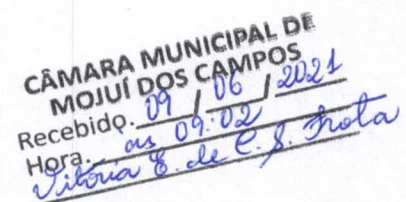 CÂMARA MUNICIPAL DE
MOJUÍ DOS CAMPOS
Recebido. 09 / 06 / 2021
Hora. às 09:02
Vitória E. de C. S. Frota